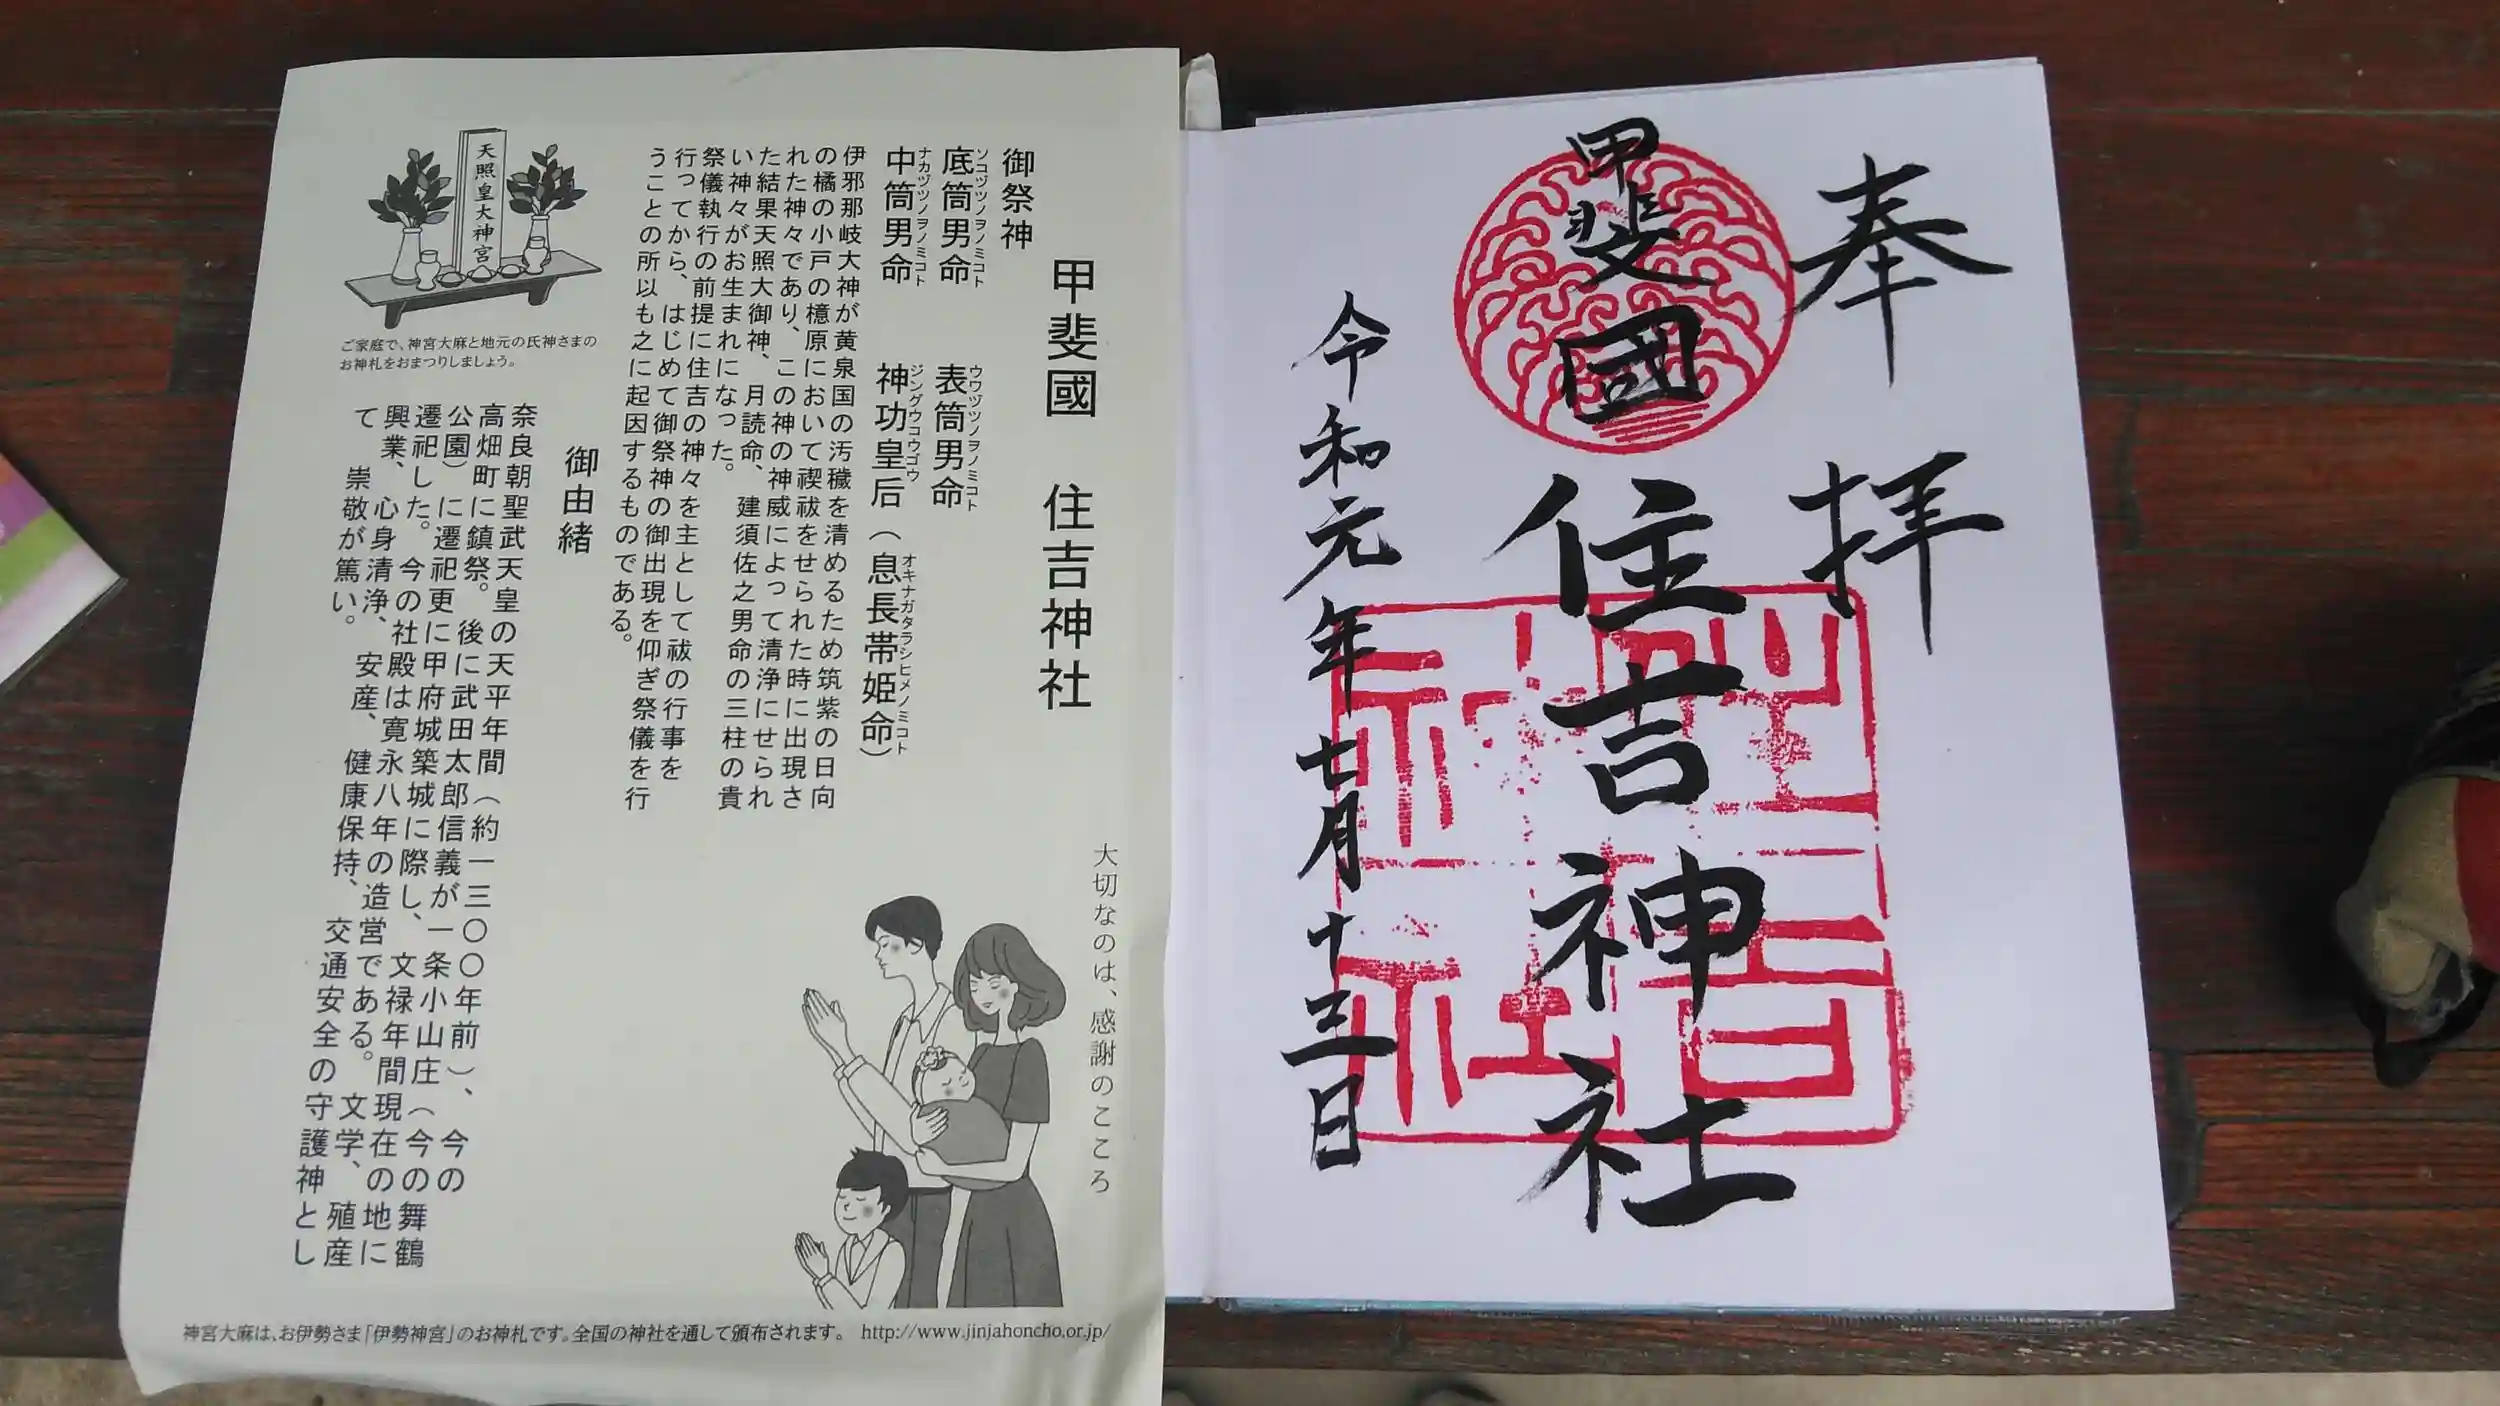 奉拝
甲斐國
住吉神社
令和元年七月十三日
甲斐國 住吉神社
御祭神
底筒男命 表筒男命
ソコヅツノヲノミコト ウワヅツノヲノミコト
中筒男命 神功皇后（息長帯姫命）
ナカヅツノヲノミコト ジングウコウゴウ オキナガタラシヒメノミコト
伊邪那岐大神が黄泉国の汚穢を清めるため筑紫の日向
の橘の小戸の檍原において禊祓をせられた時に出現さ
れた神々であり、この神の神威によって清浄にせられ
た結果天照大御神、月読命、建須佐之男命の三柱の貴
い神々がお生まれになった。
祭儀執行の前提に住吉の神々を主として祓の行事を
行ってから、はじめて御祭神の御出現を仰ぎ祭儀を行
うことの所以も之に起因するものである。
御由緒
奈良朝聖武天皇の天平年間（約一三〇〇年前）、今の
高畑町に鎮祭。後に武田太郎信義が一条小山庄（今の舞鶴
公園）に遷祀更に甲府城築城に際し、文禄年間現在の地に
遷祀した。今の社殿は寛永八年の造営である。文学、殖産
興業、心身清浄、安産、健康保持、交通安全の守護神とし
て 崇敬が篤い。
天照皇大神宮
ご家庭で、神宮大麻と地元の氏神さまの
お神札をおまつりしましょう。
大切なのは、感謝のこころ
神宮大麻は、お伊勢さま「伊勢神宮」のお神札です。全国の神社を通して頒布されます。 http://www.jinjahoncho.or.jp/